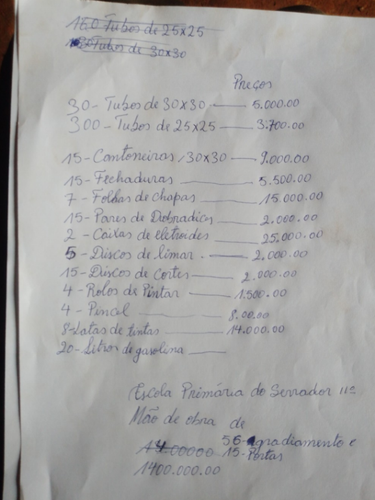 150 Tubos de 25x25
Tubos de 30x30
Preços
30 - Tubos de 30x30 — 5.000.00
300 - Tubos de 25x25 — 3.700.00
15 - Cantoneiras 30x30 — 9.000.00
15 - Fechaduras — 5.500.00
7 - Folhas de chapas — 15.000.00
15 - Pares de Dobradiças — 2.000.00
2 - Caixas de eletrodes — 25.000.00
5 - Discos de limar . — 2.000.00
15 - Discos de cortes — 2.000.00
4 - Rolos de Pintar — 1.500.00
4 - Pincel — 8.00.00
8 - Latas de tintas — 14.000.00
20 - Litros de gasolina —
Escola Primária do Serrador 11º
Mão de obra de
56 - gradiamento e
15 - Portas
1400.000.00